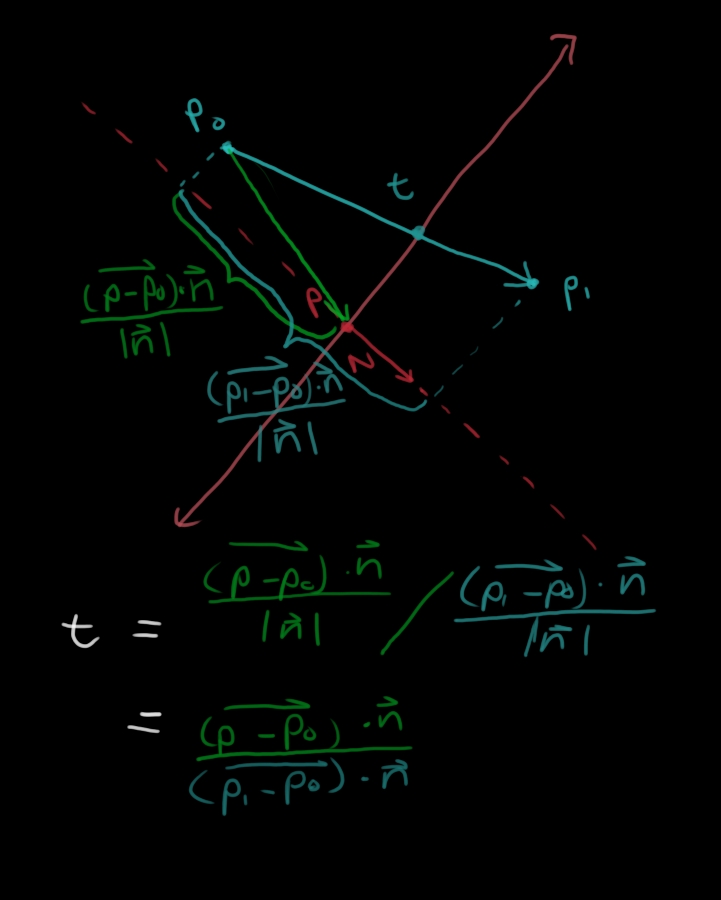 p₀
t
p₁
(p-p₀)·n
|n|
p
N
(p₁-p₀)·n
|n|
t = (p-p₀)·n / (p₁-p₀)·n
|n| |n|
= (p-p₀)·n
(p₁-p₀)·n